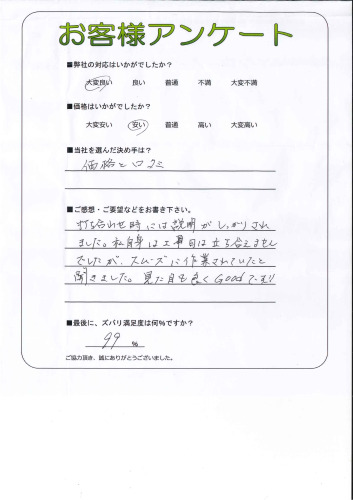 お客様アンケート
■弊社の対応はいかがでしたか？
大変良い 良い 普通 不満 大変不満
■価格はいかがでしたか？
大変安い 安い 普通 高い 大変高い
■当社を選んだ決め手は？
価格と口コミ
■ご感想・ご要望などをお書き下さい。
打ち合わせ時には説明がしっかりされ
ました。私自身は工事日は立ち会えません
でしたが、スムーズに作業されていたと
聞きました。見た目も良くGoodです
■最後に、ズバリ満足度は何％ですか？
99 ％
ご協力頂き、誠にありがとうございました。